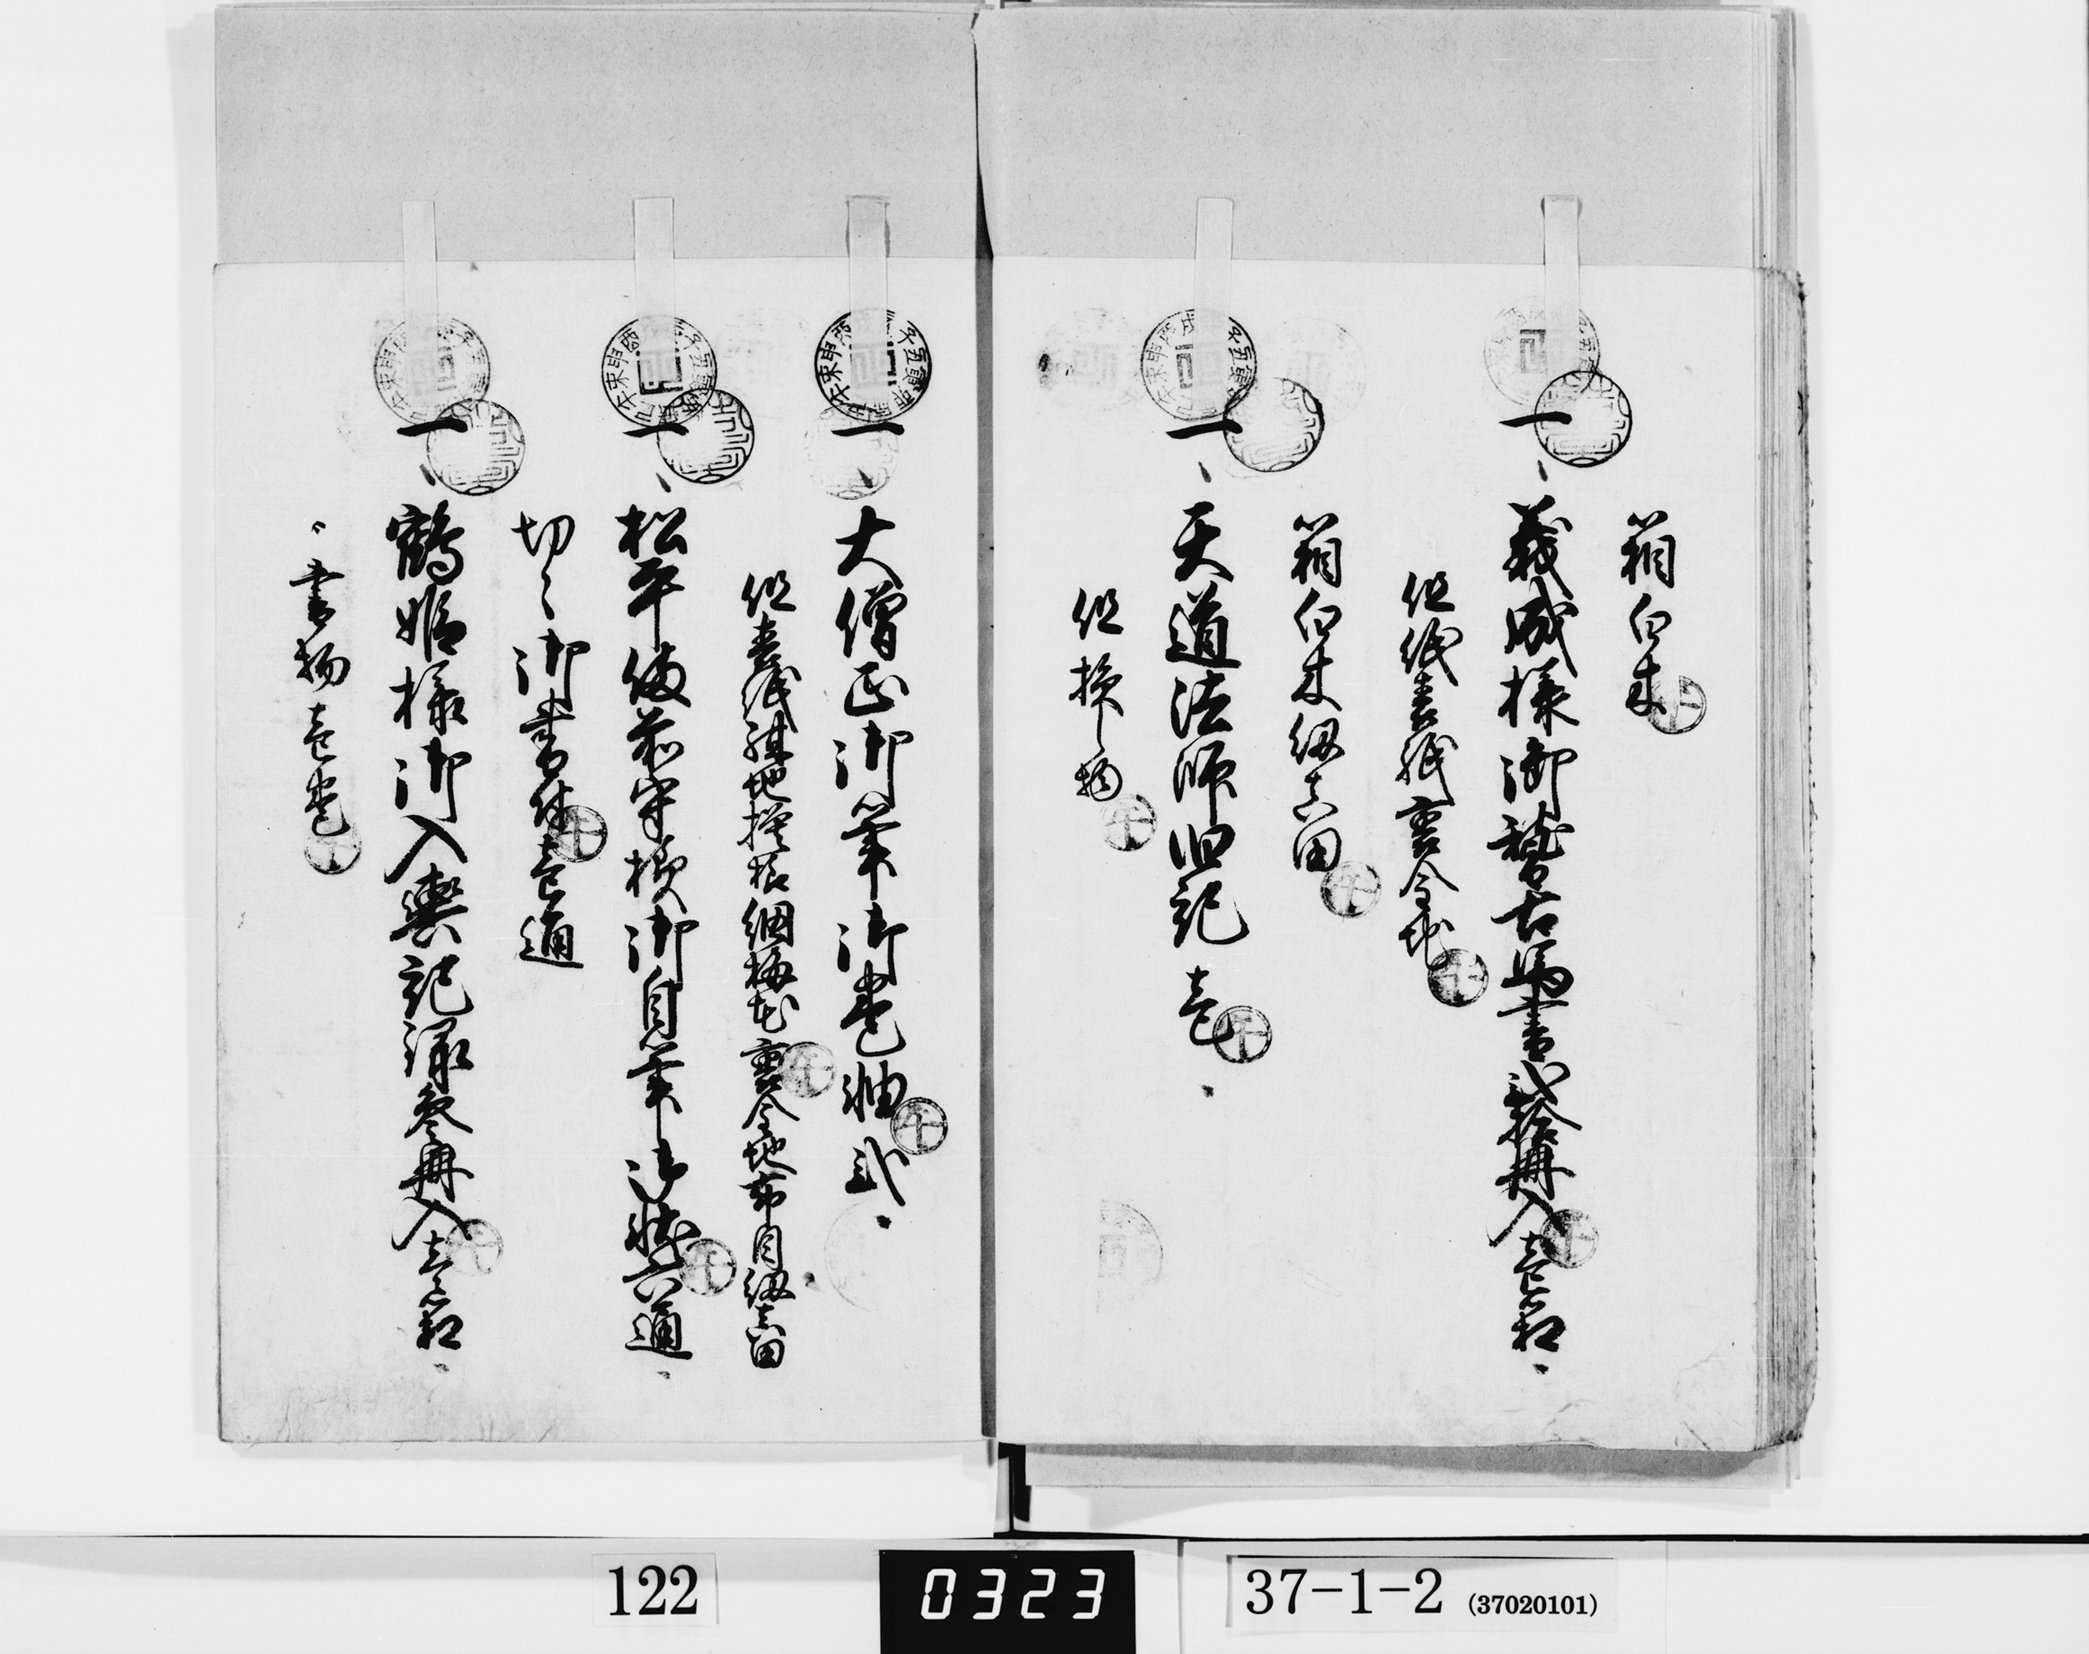 箱白木
一、義成様御稽古馬書弐拾冊入壱箱
但紙表紙裏金地
箱白木紐真田
一、天道法師旧記壱
但損し物
一、大僧正御筆御巻軸弐
但表紙 地 梅 裏金地布目紐真田
一、松平備前守様御自筆御状六通
切々御書付壱通
一、鶴姫様御入輿記録参冊入壱箱
、書物壱巻
122
0323
37-1-2 (37020101)